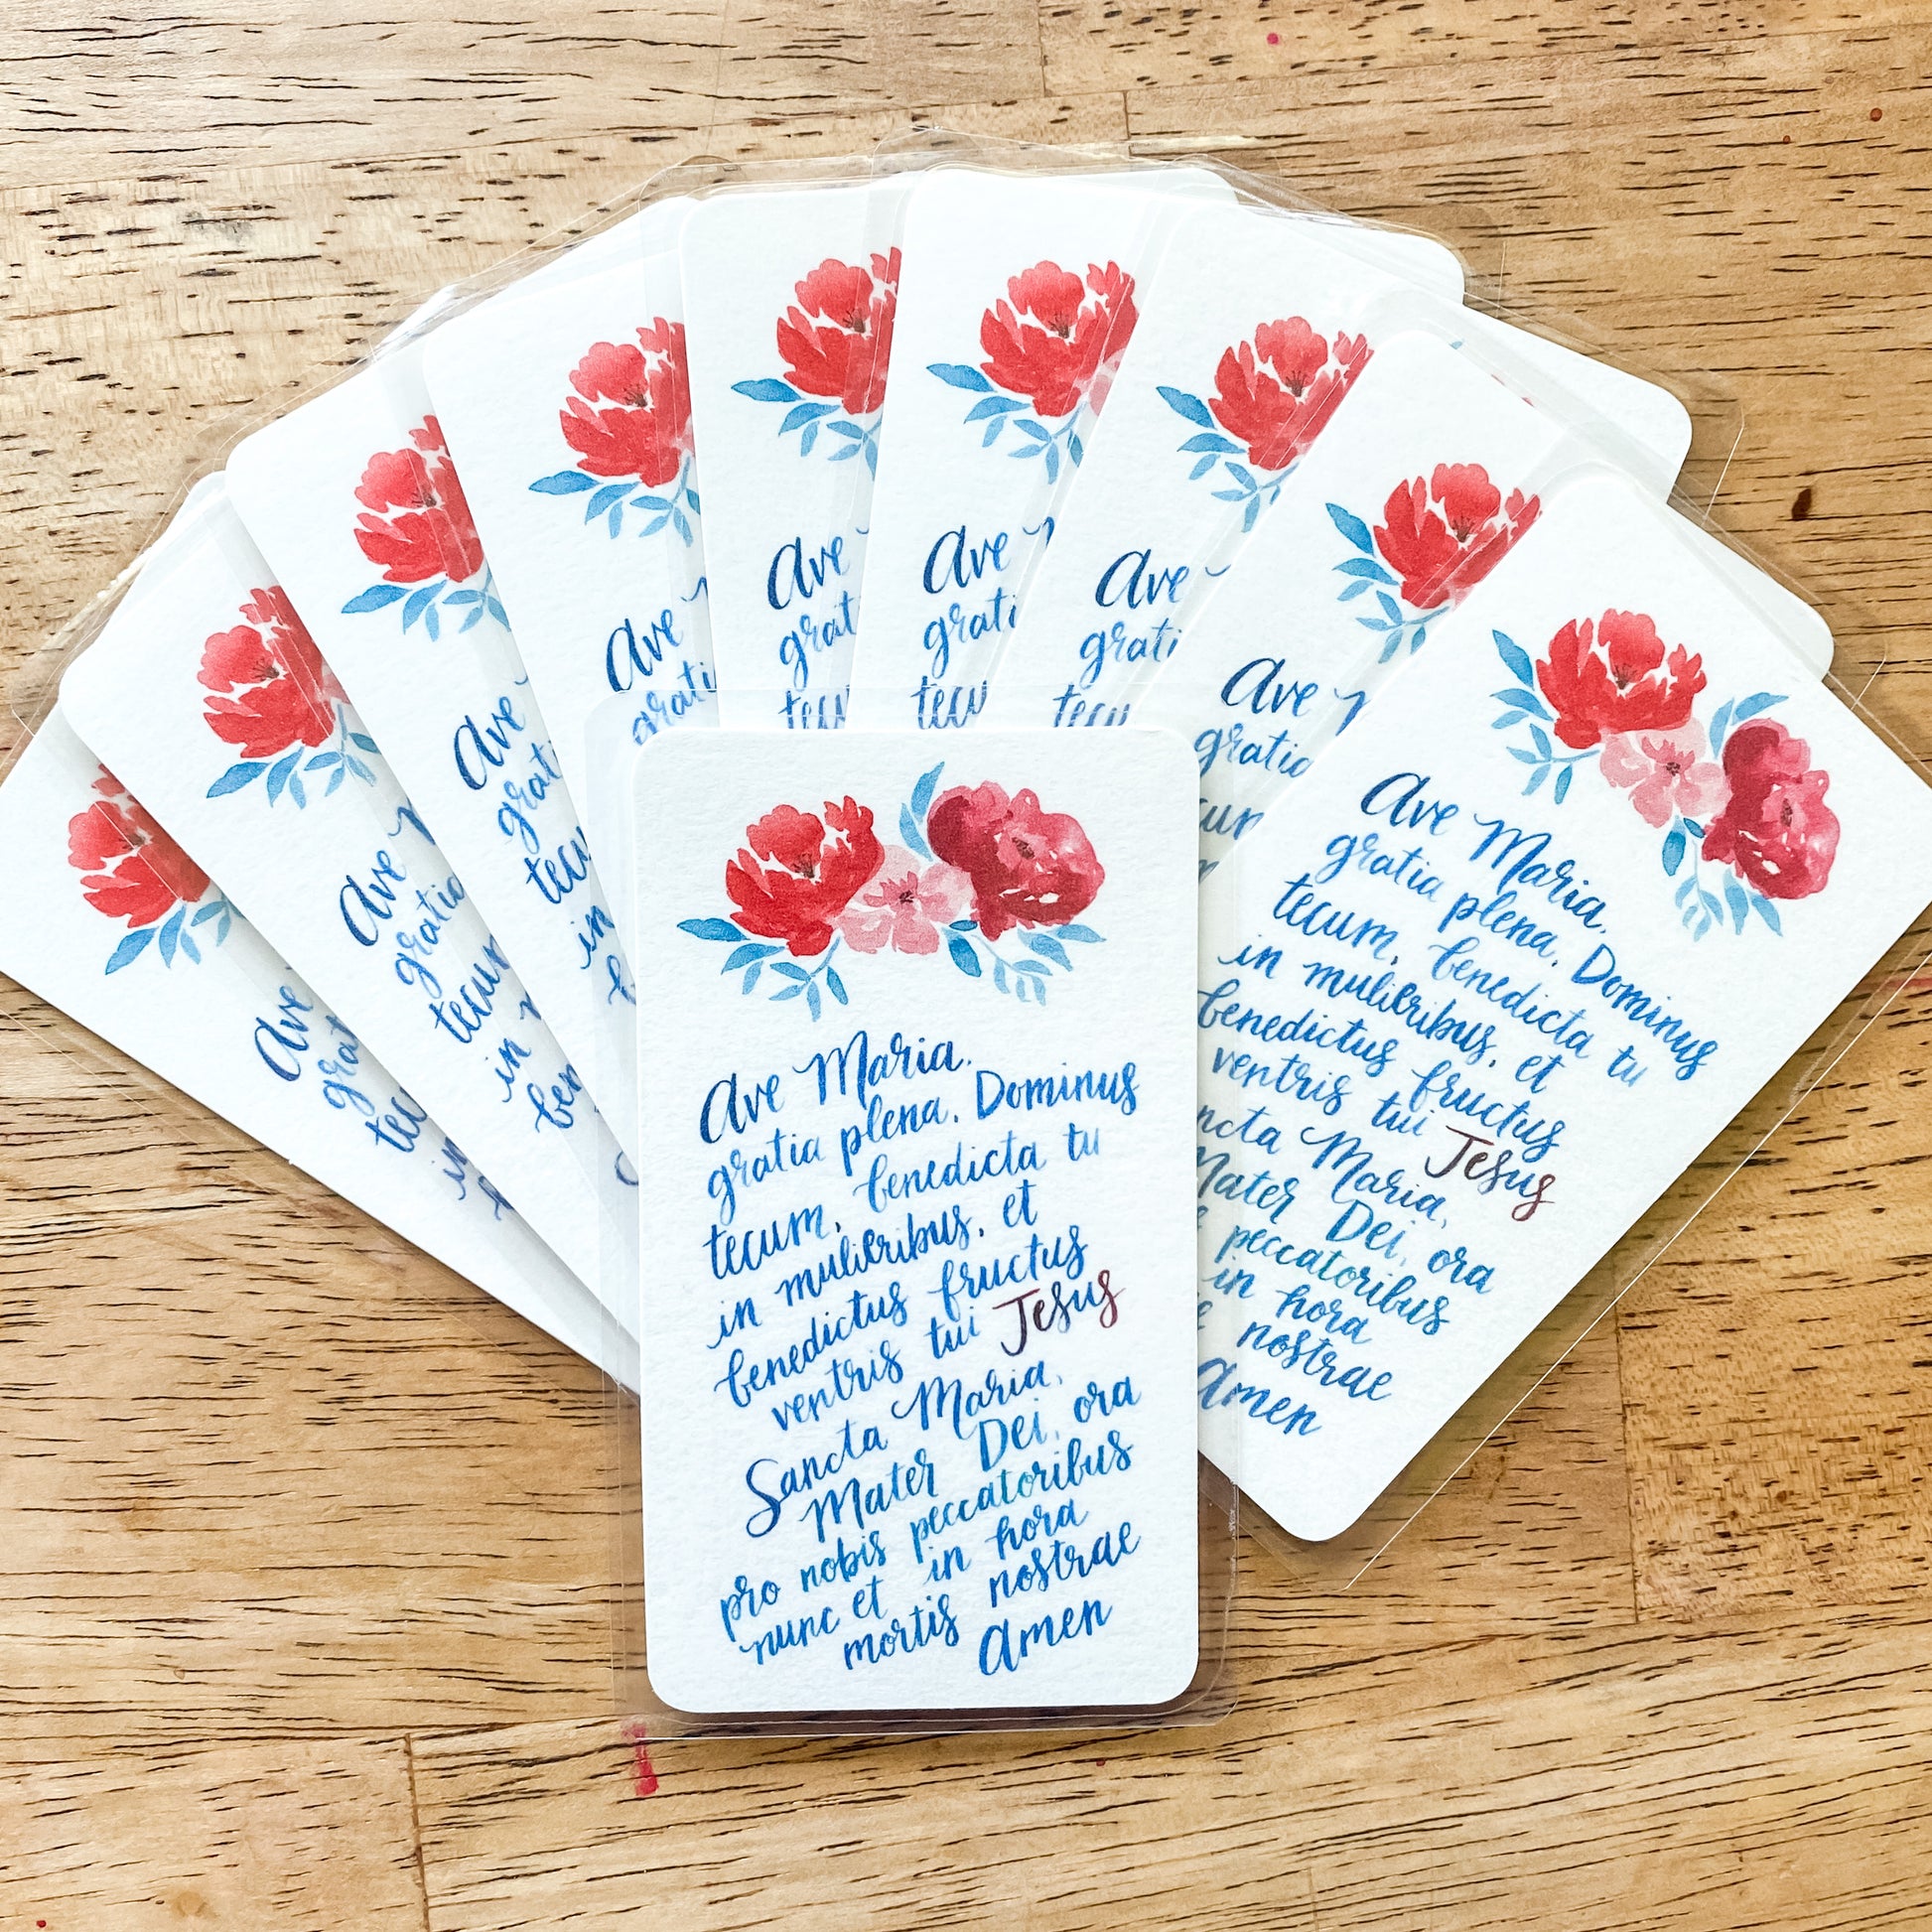 Ave Maria,
gratia plena, Dominus
tecum, benedicta tu
in mulieribus, et
benedictus fructus
ventris tui Jesus
Sancta Maria,
Mater Dei, ora
pro nobis peccatoribus
nunc et in hora
mortis nostrae
Amen
Ave Maria,
gratia plena, Dominus
tecum, benedicta tu
in mulieribus, et
benedictus fructus
ventris tui Jesus
Maria,
Mater Dei, ora
peccatoribus
in hora
nostrae
Amen
Ave
Ave
gratia
in
Ave
in
Ave
Ave
Ave
Ave
Ave
gratia